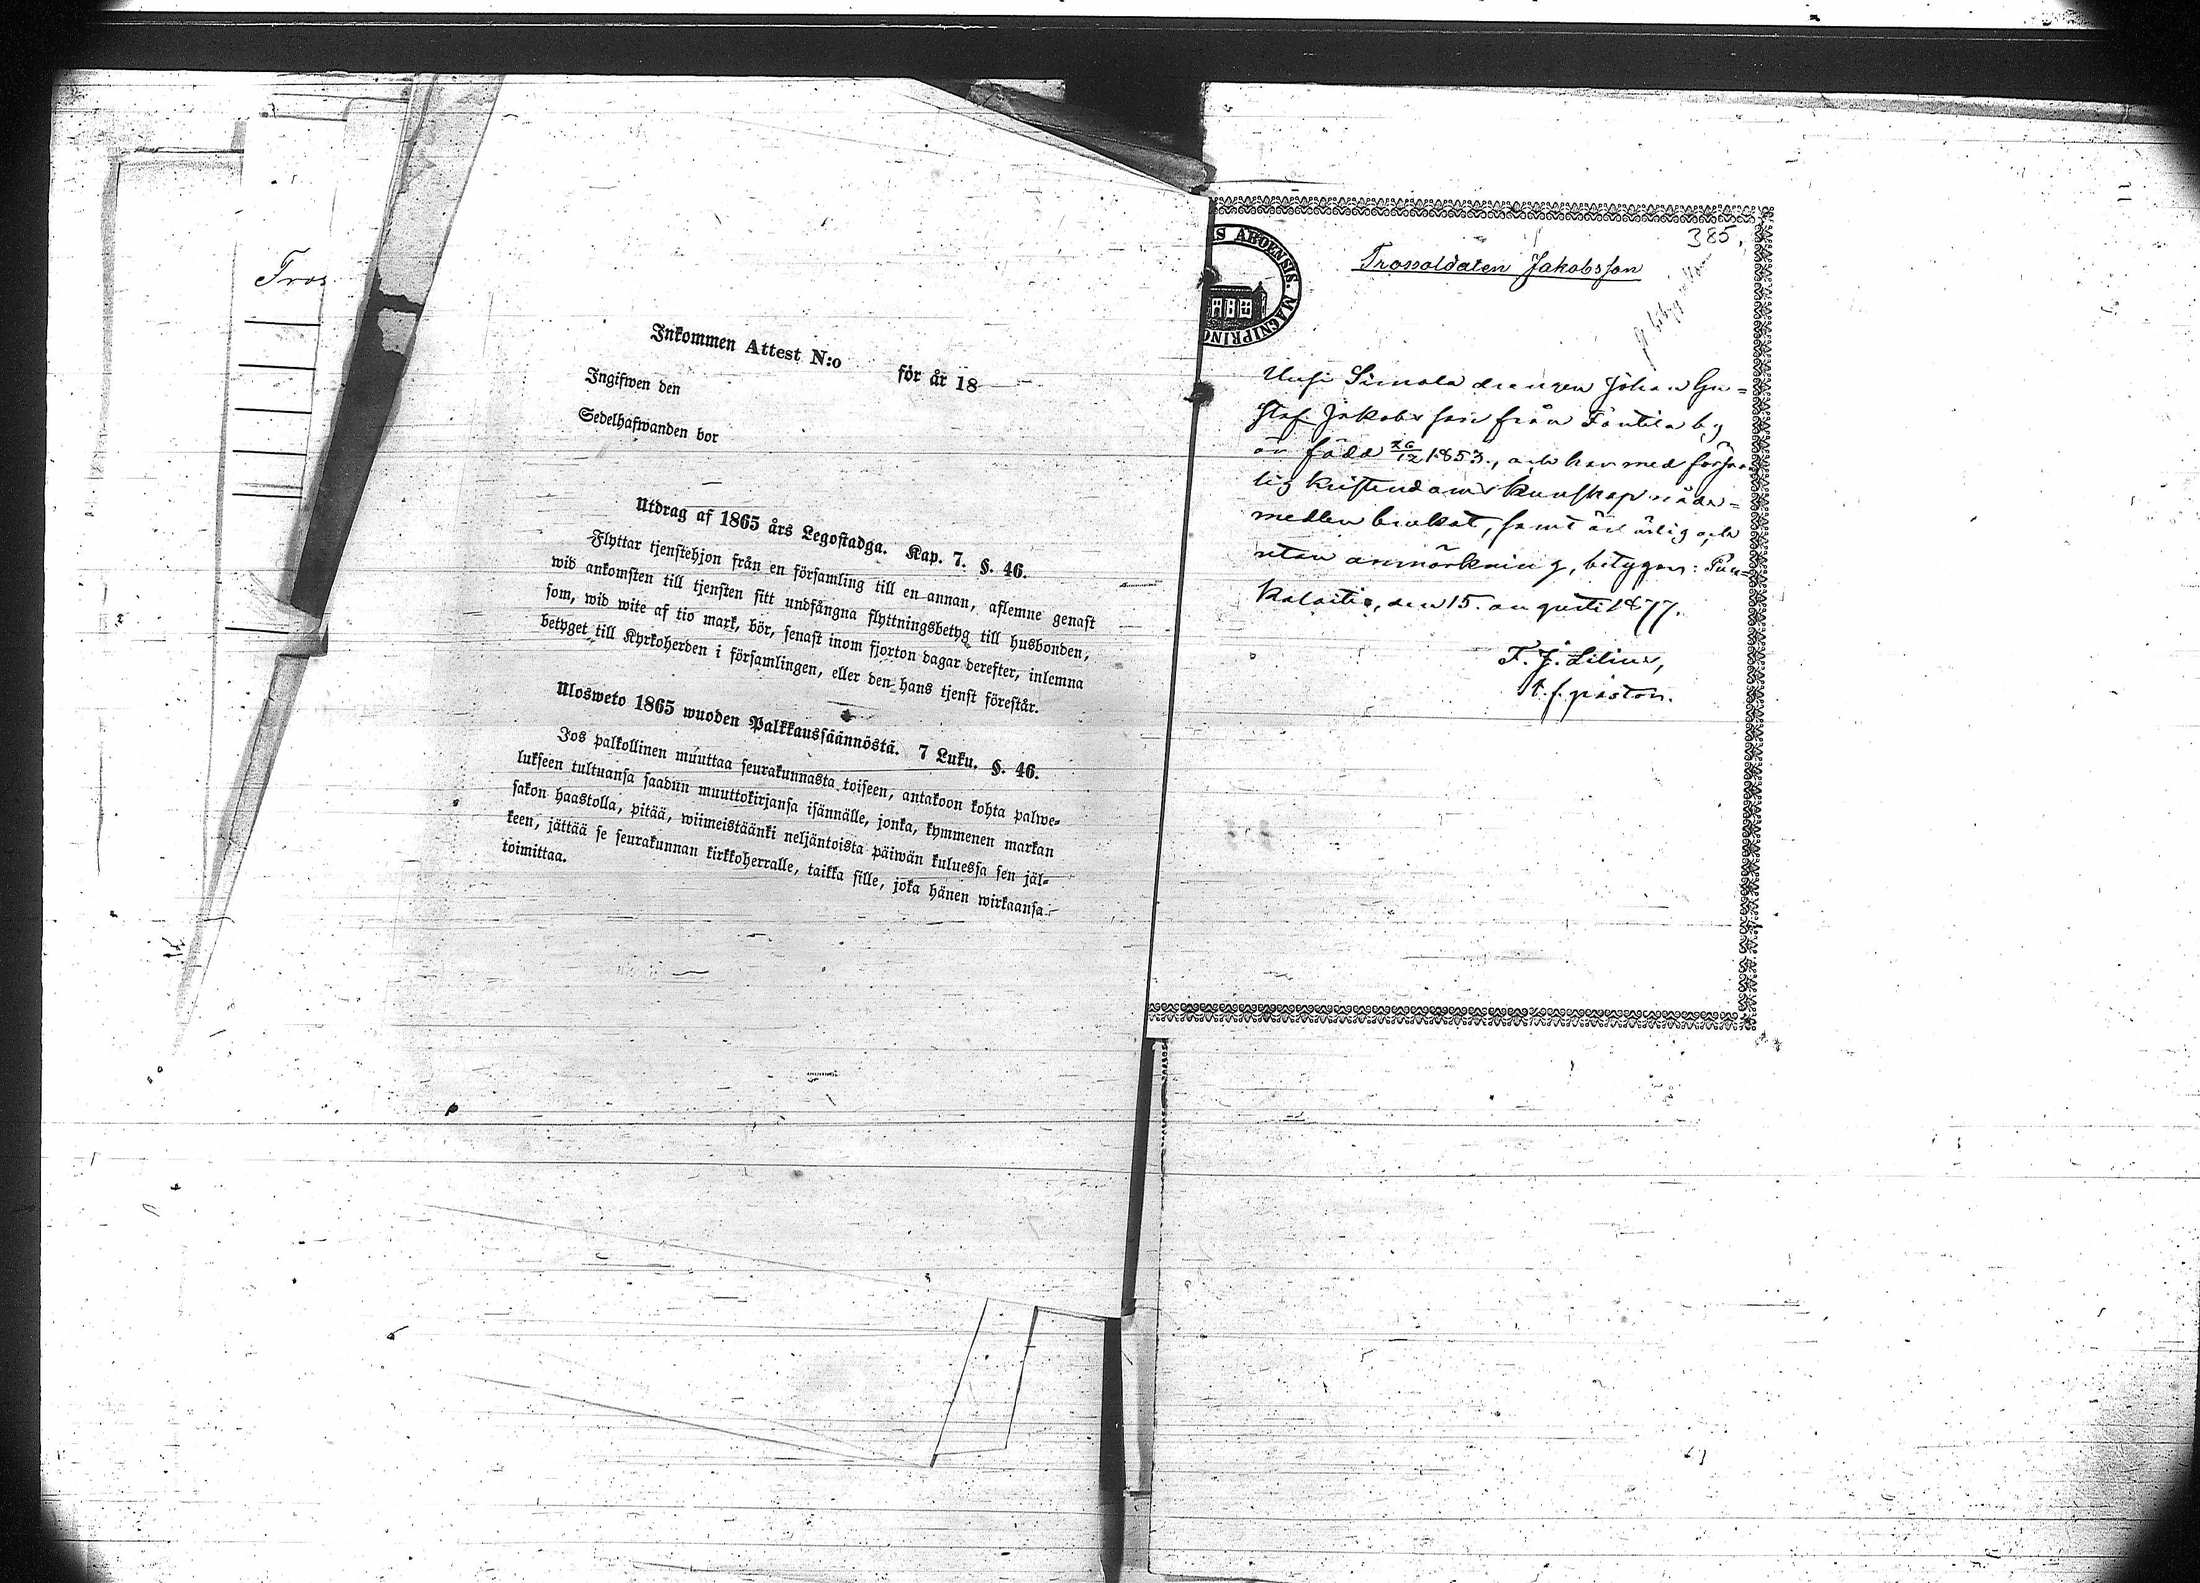 Tros
Inkommen Attest N:o för år 18
Ingifwen den
Sedelhafwanden bor
Utdrag af 1865 års Legostadga. Kap. 7. §. 46.
Flyttar tjenstehjon från en församling till en annan, aflemne genast
wid ankomsten till tjensten sitt undfångna flyttningsbetyg till husbonden,
som, wid wite af tio mark, bör, senast inom fjorton dagar derefter, inlemna
betyget till Kyrkoherden i församlingen, eller den hans tjenst förestår.
Ulosweto 1865 wuoden Palkkaussäännöstä. 7 Luku. §. 46.
Jos palkollinen muuttaa seurakunnasta toiseen, antakoon kohta palwe-
lukseen tultuansa saadun muuttokirjansa isännälle, jonka, kymmenen markan
sakon haastolla, pitää, wiimeistäänki neljäntoista päiwän kuluessa sen jäl-
keen, jättää se seurakunnan kirkkoherralle, taikka sille, joka hänen wirkaansa
toimittaa.
S ABOENSIS. MAGNI PRINC
385.
Trossoldaten Jakobsson
Uusi Simola drengen Johan Gu-
staf Jakobsson från Töntilä by
är född 26/12 1853, och har med försva-
lig kristendoms kunskap nåde-
medlen brukat, samt är ärlig och
utan anmärkning, betygar: Pun-
kalaitio, den 15. augusti 1877.
F. J. Lilius,
t. f. pastor.